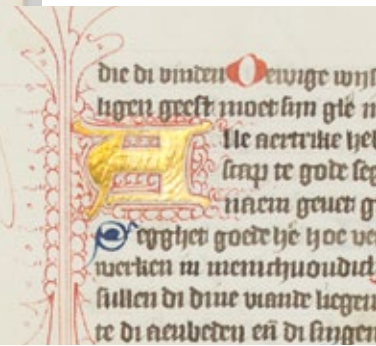 die di vinden O ewige wijs
ligen geest moet sijn glē m
Alle aertrike heb
scap te gode seg
naem geuet g
Segghet goede hē hoe ve
werken in menichuoudich
sullen di dine viande liegen
te di aenbeden eñ di singen